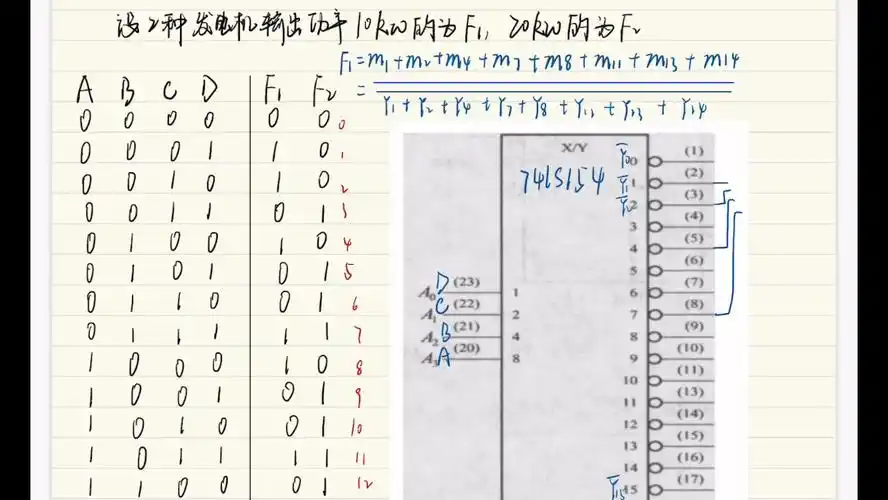 设2种发电机输出功率10kw的为F₁, 20kw的为F₂
F₁=m₁+m₂+m₄+m₇+m₈+m₁₁+m₁₃+m₁₄
= Y₁+Y₂+Y₄+Y₇+Y₈+Y₁₁+Y₁₃+Y₁₄
A B C D F₁ F₂
0 0 0 0 0 0 0
0 0 0 1 1 0 1
0 0 1 0 1 0 2
0 0 1 1 0 1 3
0 1 0 0 1 0 4
0 1 0 1 0 1 5
0 1 1 0 0 1 6
0 1 1 1 1 1 7
1 0 0 0 1 0 8
1 0 0 1 0 1 9
1 0 1 0 0 1 10
1 0 1 1 1 1 11
1 1 0 0 0 1 12
X/Y
74LS154
Y̅₀ 0 (1)
Y̅₁ 1 (2)
Y̅₂ 2 (3)
3 (4)
4 (5)
5 (6)
6 (7)
7 (8)
8 (9)
9 (10)
10 (11)
11 (13)
12 (14)
13 (15)
14 (16)
Y̅₁₅ 15 (17)
A₀ D (23) 1
A₁ C (22) 2
A₂ B (21) 4
A₃ A (20) 8